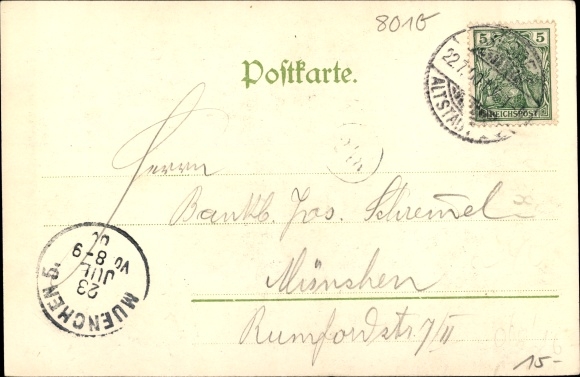 8010
Postkarte.
5 5
REICHSPOST
22.7.
ALTSTADT
Herrn
Bankb. Jos. Schremel
München
Rumfordstr. 7/II
MUENCHEN 5.
23
JUL
Vo 8-9
00
15-